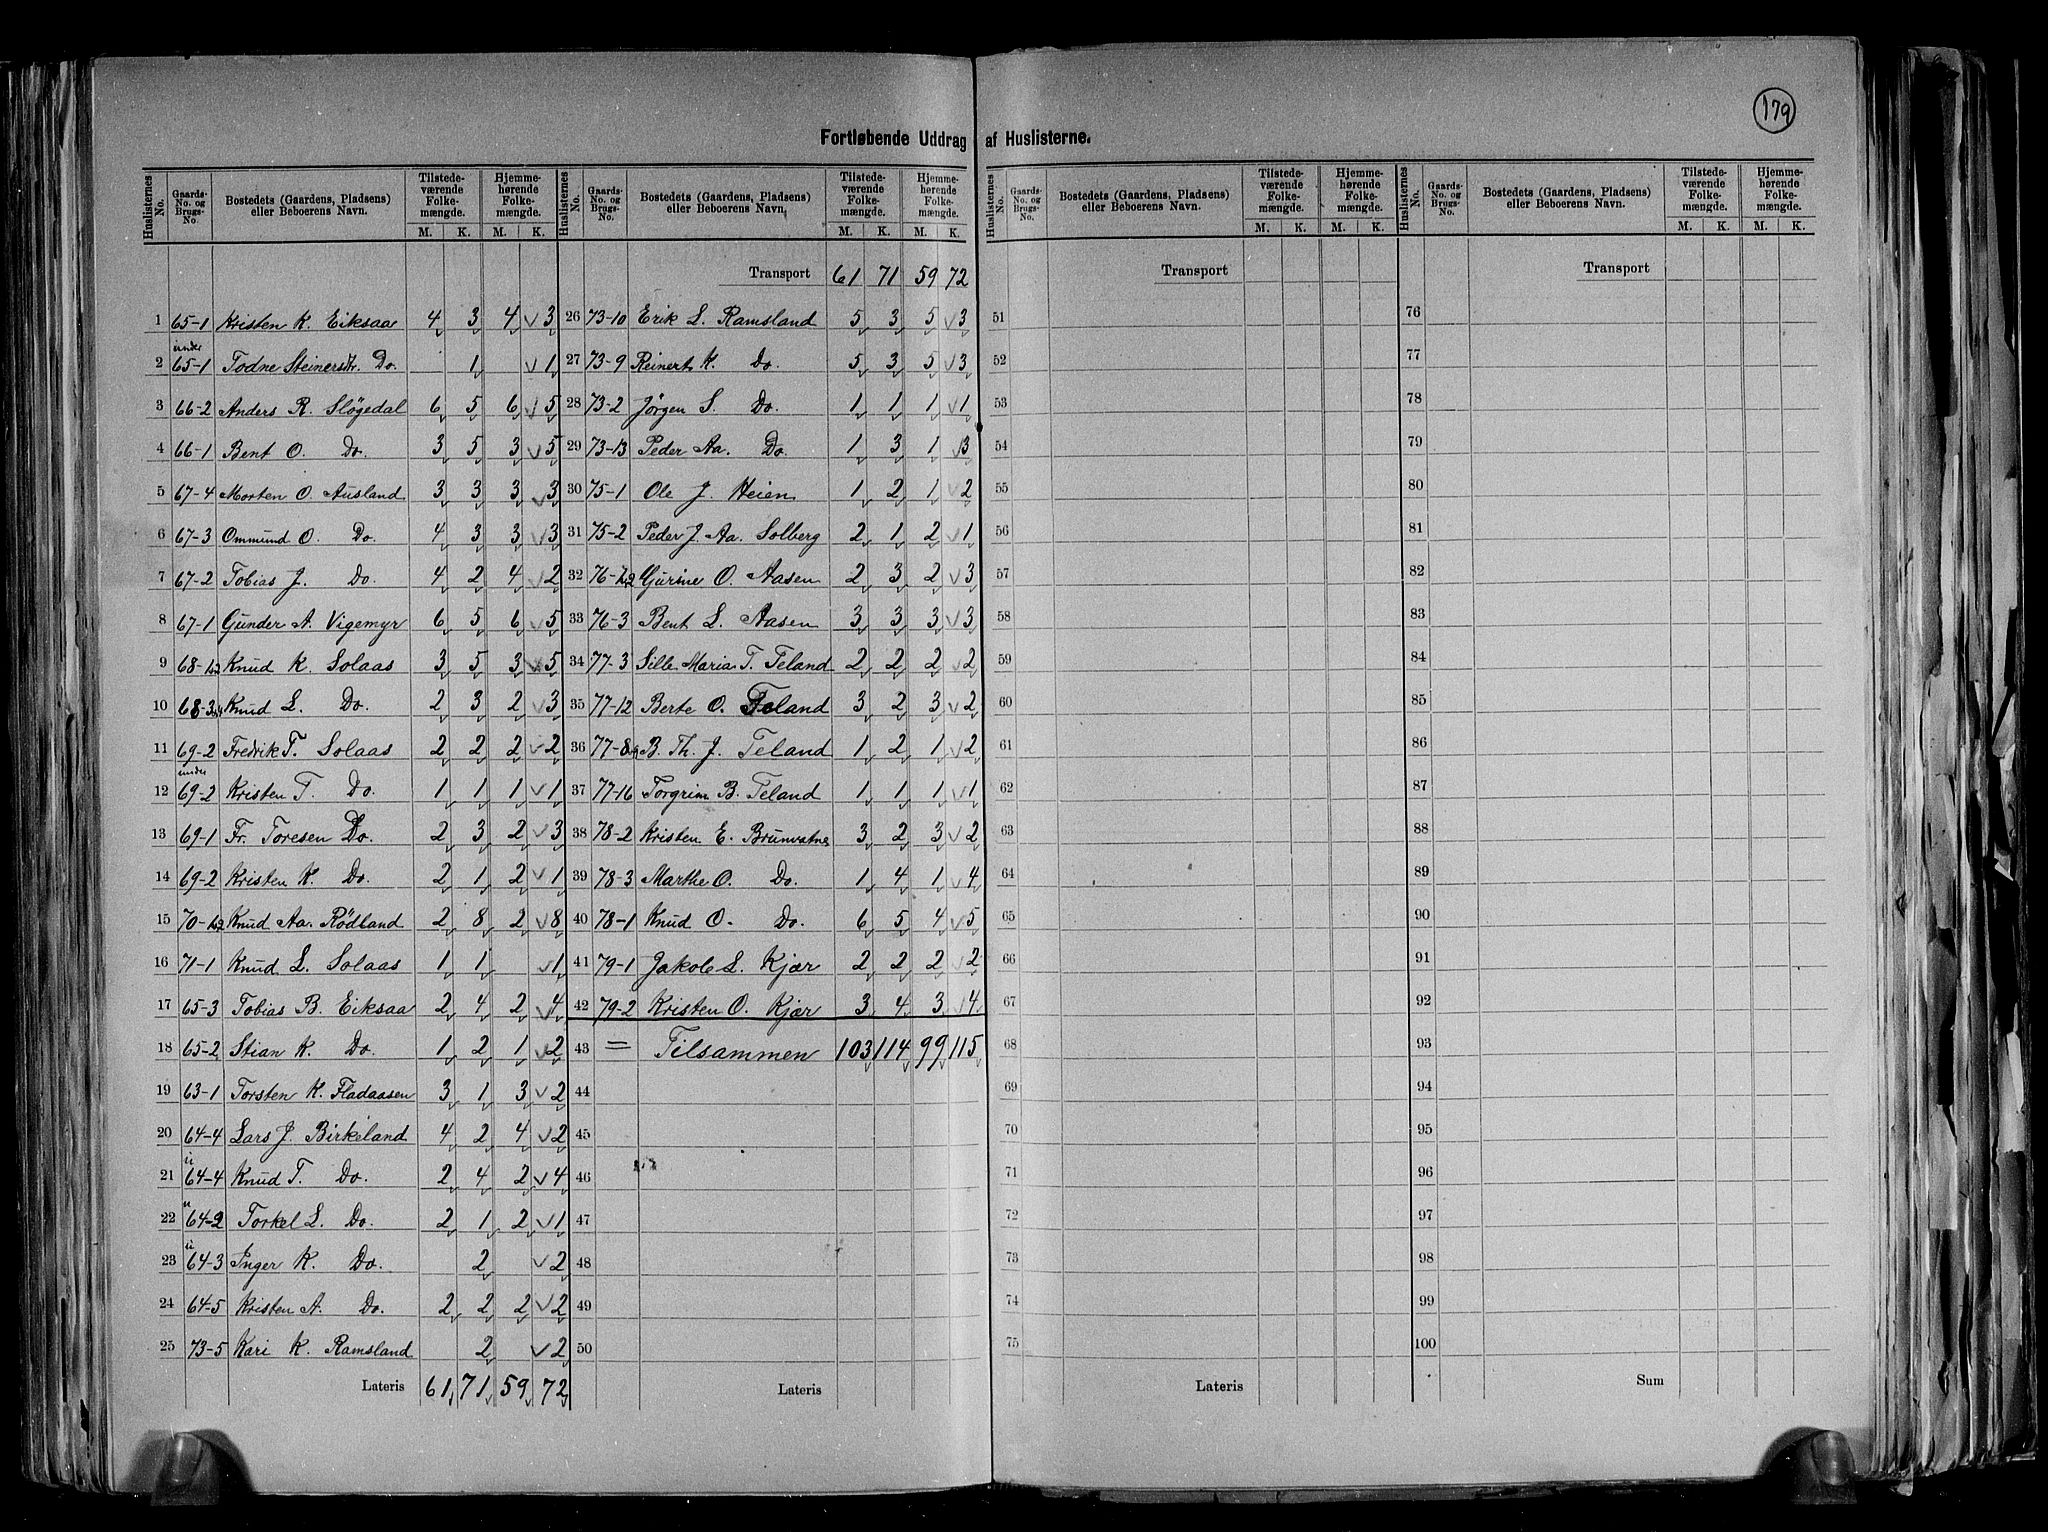 179
Fortløbende Uddrag af Huslisterne.
Huslisternes No. Gaards-No. og Brugs-No Bostedets (Gaardens, Pladsens) eller Beboerens Navn. Tilstedeværende Folkemængde. M. K. Hjemmehørende Folkemængde. M. K.
1 65-1 Kristen K. Eiksaa 4 3 4 3
2 under 65-1 Todne Steinersdtr. Do. 1 1
3 66-2 Anders R. Sløgedal 6 5 6 5
4 66-1 Bent O. Do. 3 5 3 5
5 67-4 Morten O. Ausland 3 3 3 3
6 67-3 Ommund O. Do. 4 3 3 3
7 67-2 Tobias J. Do. 4 2 4 2
8 67-1 Gunder A. Vigemyr 6 5 6 5
9 68-1,2 Knud K. Solaas 3 5 3 5
10 68-3,4 Knud L. Do. 2 3 2 3
11 69-2 Fredrik T. Solaas 2 2 2 2
12 under 69-2 Kristen T. Do. 1 1 1 1
13 69-1 Fr. Toresen Do. 2 3 2 3
14 69-2 Kristen K. Do. 2 1 2 1
15 70-1,2 Knud Aa. Rödland 2 8 2 8
16 71-1 Knud L. Solaas 1 1 1
17 65-3 Tobias B. Eiksaa 2 4 2 4
18 65-2 Stian K. Do. 1 2 1 2
19 63-1 Torsten K. Fladaasen 3 1 3 2
20 64-4 Lars J. Birkeland 4 2 4 2
21 u 64-4 Knud T. Do. 2 4 2 4
22 u 64-2 Torkel L. Do. 2 1 2 1
23 u 64-3 Inger K. Do. 2 2
24 64-5 Kristen A. Do. 2 2 2 2
25 73-5 Kari K. Ramsland 2 2
Lateris 61 71 59 72
Huslisternes No. Gaards-No. og Brugs-No. Bostedets (Gaardens, Pladsens) eller Beboerens Navn. Tilstedeværende Folkemængde. M. K. Hjemmehørende Folkemængde. M. K.
Transport 61 71 59 72
26 73-10 Erik L. Ramsland 5 3 5 3
27 73-9 Reinert K. Do. 5 3 5 3
28 73-2 Jørgen S. Do. 1 1 1 1
29 73-13 Peder Aa. Do. 1 3 1 3
30 75-1 Ole J. Heien 1 2 1 2
31 75-2 Peder J. Aa. Solberg 2 1 2 1
32 76-1,2 Gurine O. Aasen 2 3 2 3
33 76-3 Bent L. Aasen 3 3 3 3
34 77-3 Sille Maria T. Teland 2 2 2 2
35 77-12 Berte O. Teland 3 2 3 2
36 77-8,9 B. Th. J. Teland 1 2 1 2
37 77-16 Torgrim B. Teland 1 1 1 1
38 78-2 Kristen E. Brunvatne 3 2 3 2
39 78-3 Marthe O. Do. 1 4 1 4
40 78-1 Knud O. Do. 6 5 4 5
41 79-1 Jakob L. Kjær 2 2 2 2
42 79-2 Kristen O. Kjær 3 4 3 4
43 = Tilsammen 103 114 99 115
44
45
46
47
48
49
50
Lateris
Huslisternes No. Gaards-No. og Brugs-No. Bostedets (Gaardens, Pladsens) eller Beboerens Navn. Tilstedeværende Folkemængde. M. K. Hjemmehørende Folkemængde. M. K.
Transport
51
52
53
54
55
56
57
58
59
60
61
62
63
64
65
66
67
68
69
70
71
72
73
74
75
Lateris
Huslisternes No. Gaards-No. og Brugs-No. Bostedets (Gaardens, Pladsens) eller Beboerens Navn. Tilstedeværende Folkemængde. M. K. Hjemmehørende Folkemængde. M. K.
Transport
76
77
78
79
80
81
82
83
84
85
86
87
88
89
90
91
92
93
94
95
96
97
98
99
100
Sum